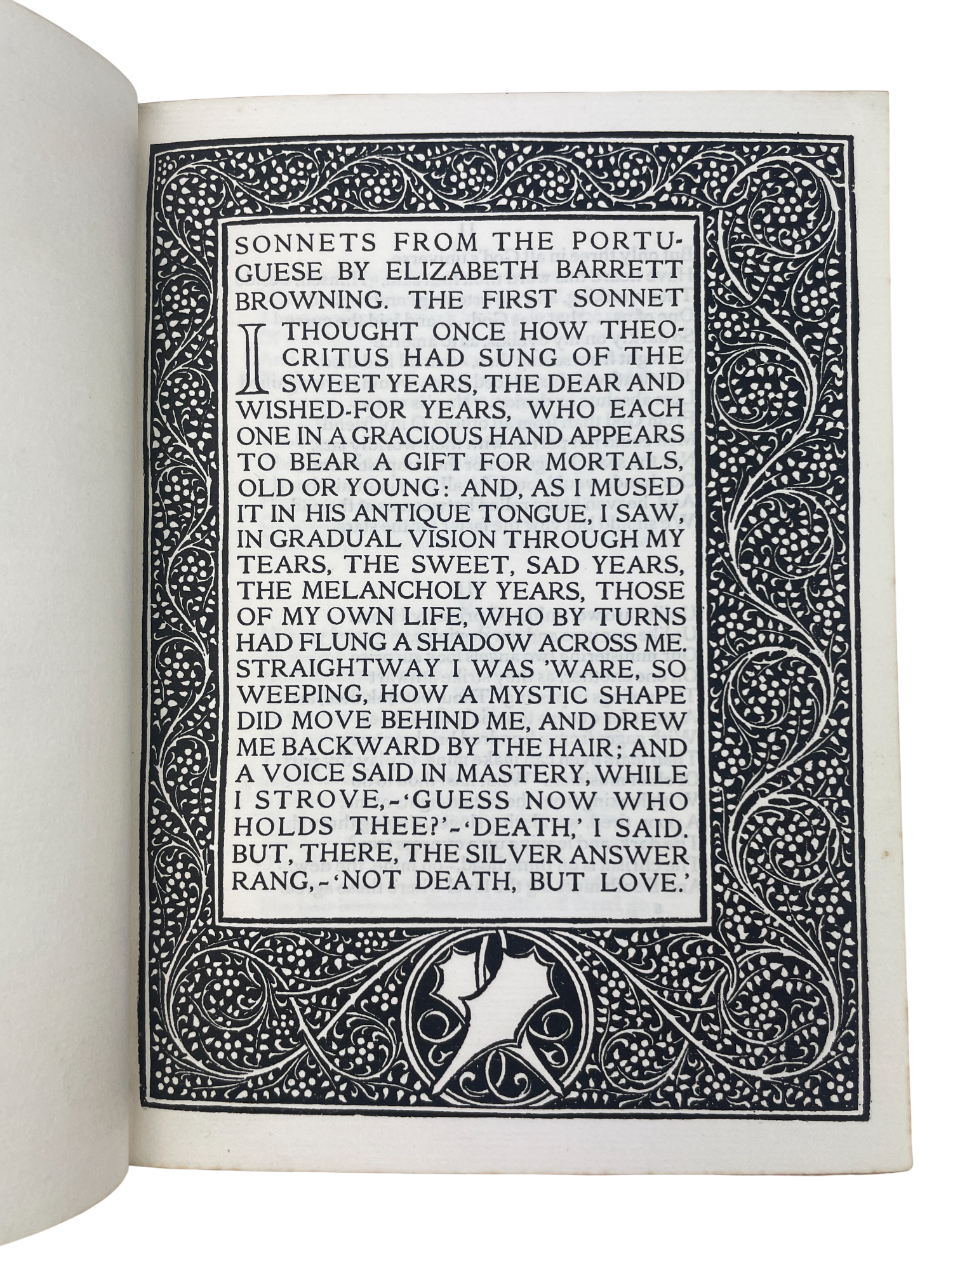 SONNETS FROM THE PORTU-
GUESE BY ELIZABETH BARRETT
BROWNING. THE FIRST SONNET
I THOUGHT ONCE HOW THEO-
CRITUS HAD SUNG OF THE
SWEET YEARS, THE DEAR AND
WISHED-FOR YEARS, WHO EACH
ONE IN A GRACIOUS HAND APPEARS
TO BEAR A GIFT FOR MORTALS,
OLD OR YOUNG: AND, AS I MUSED
IT IN HIS ANTIQUE TONGUE, I SAW,
IN GRADUAL VISION THROUGH MY
TEARS, THE SWEET, SAD YEARS,
THE MELANCHOLY YEARS, THOSE
OF MY OWN LIFE, WHO BY TURNS
HAD FLUNG A SHADOW ACROSS ME.
STRAIGHTWAY I WAS 'WARE, SO
WEEPING, HOW A MYSTIC SHAPE
DID MOVE BEHIND ME, AND DREW
ME BACKWARD BY THE HAIR; AND
A VOICE SAID IN MASTERY, WHILE
I STROVE,-'GUESS NOW WHO
HOLDS THEE?'-'DEATH,' I SAID.
BUT, THERE, THE SILVER ANSWER
RANG,-'NOT DEATH, BUT LOVE.'